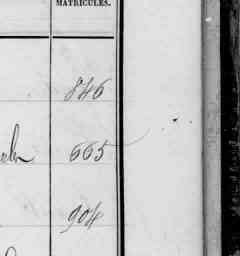 MATRICULES.
846
665
904